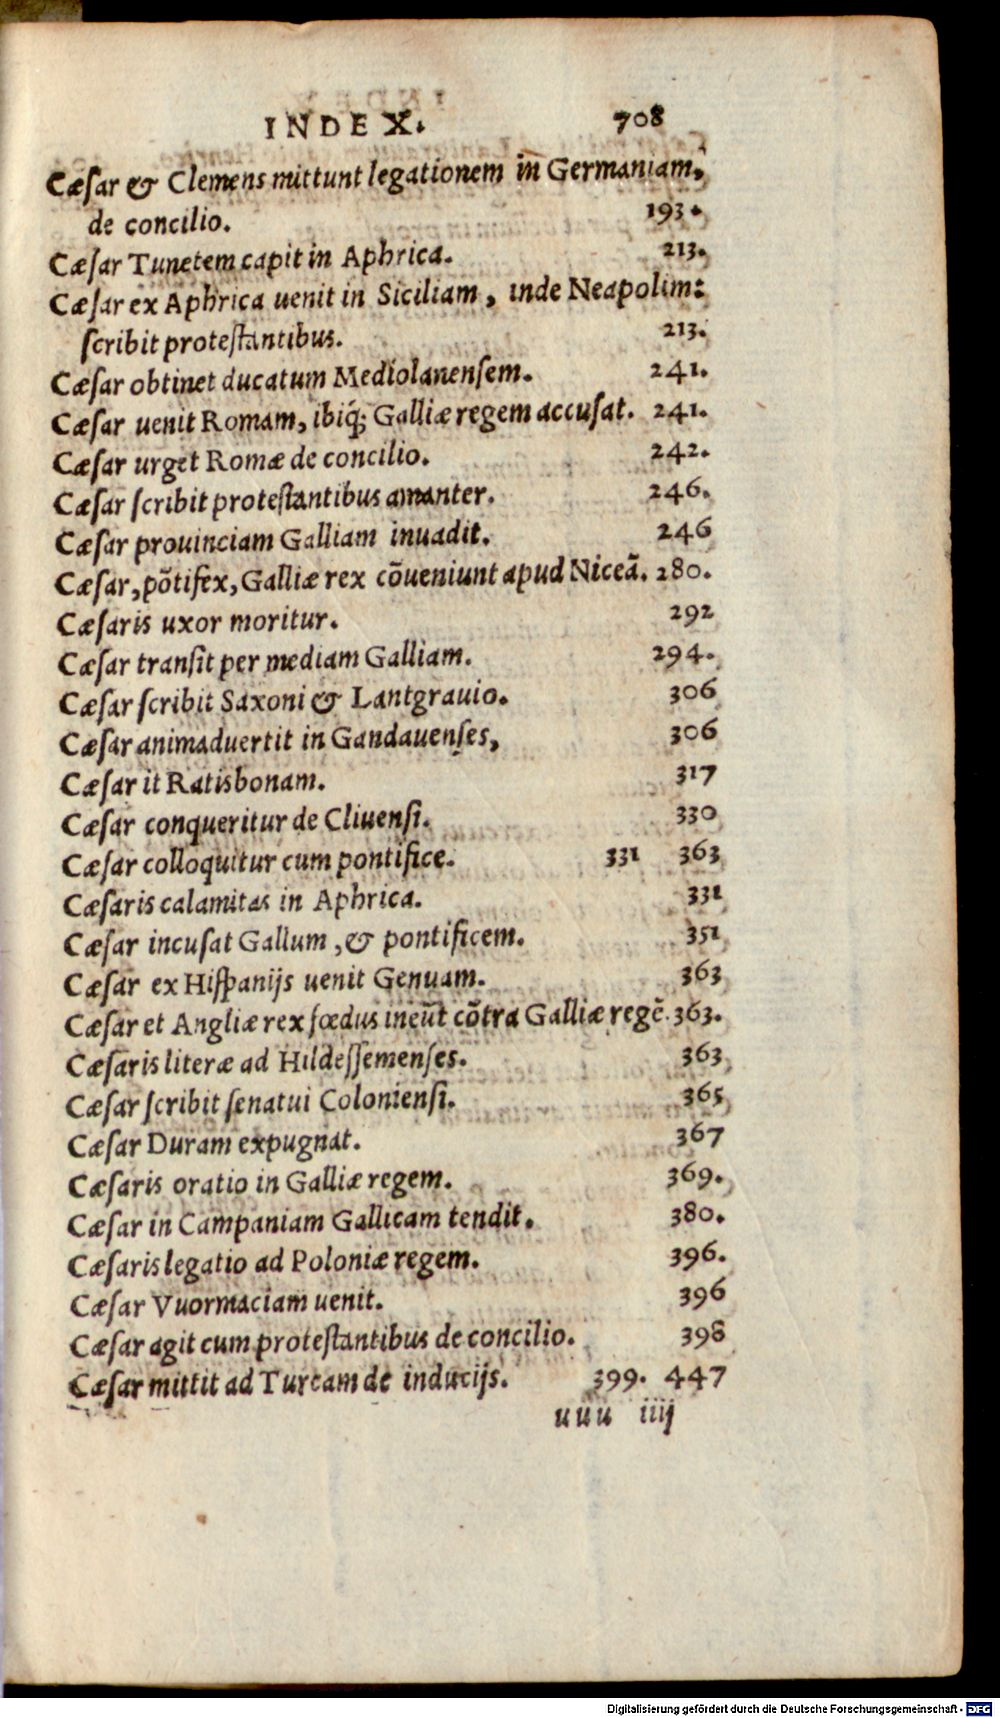 INDEX. 708
Cæſar & Clemens mittunt legationem in Germaniam,
de concilio. 193.
Cæſar Tunetem capit in Aphrica. 213.
Cæſar ex Aphrica uenit in Siciliam, inde Neapolim:
ſcribit proteſtantibus. 213.
Cæſar obtinet ducatum Mediolanenſem. 241.
Cæſar uenit Romam, ibiq́; Galliæ regem accuſat. 241.
Cæſar urget Romæ de concilio. 242.
Cæſar ſcribit proteſtantibus amanter. 246.
Cæſar prouinciam Galliam inuadit. 246
Cæſar, põtifex, Galliæ rex cõueniunt apud Niceã. 280.
Cæſaris uxor moritur. 292
Cæſar tranſit per mediam Galliam. 294.
Cæſar ſcribit Saxoni & Lantgrauio. 306
Cæſar animaduertit in Gandauenſes, 306
Cæſar it Ratisbonam. 317
Cæſar conqueritur de Cliuenſi. 330
Cæſar colloquitur cum pontifice. 331 363
Cæſaris calamitas in Aphrica. 331
Cæſar incuſat Gallum, & pontificem. 351
Cæſar ex Hiſpanijs uenit Genuam. 363
Cæſar et Angliæ rex fœdus ineũt cõtra Galliæ regẽ. 363.
Cæſaris literæ ad Hildeſſemenſes. 363
Cæſar ſcribit ſenatui Colonienſi. 365
Cæſar Duram expugnat. 367
Cæſaris oratio in Galliæ regem. 369.
Cæſar in Campaniam Gallicam tendit. 380.
Cæſaris legatio ad Poloniæ regem. 396.
Cæſar Vuormaciam uenit. 396
Cæſar agit cum proteſtantibus de concilio. 398
Cæſar mittit ad Turcam de inducijs. 399. 447
uuu iiij
Digitalisierung gefördert durch die Deutsche Forschungsgemeinschaft - DFG